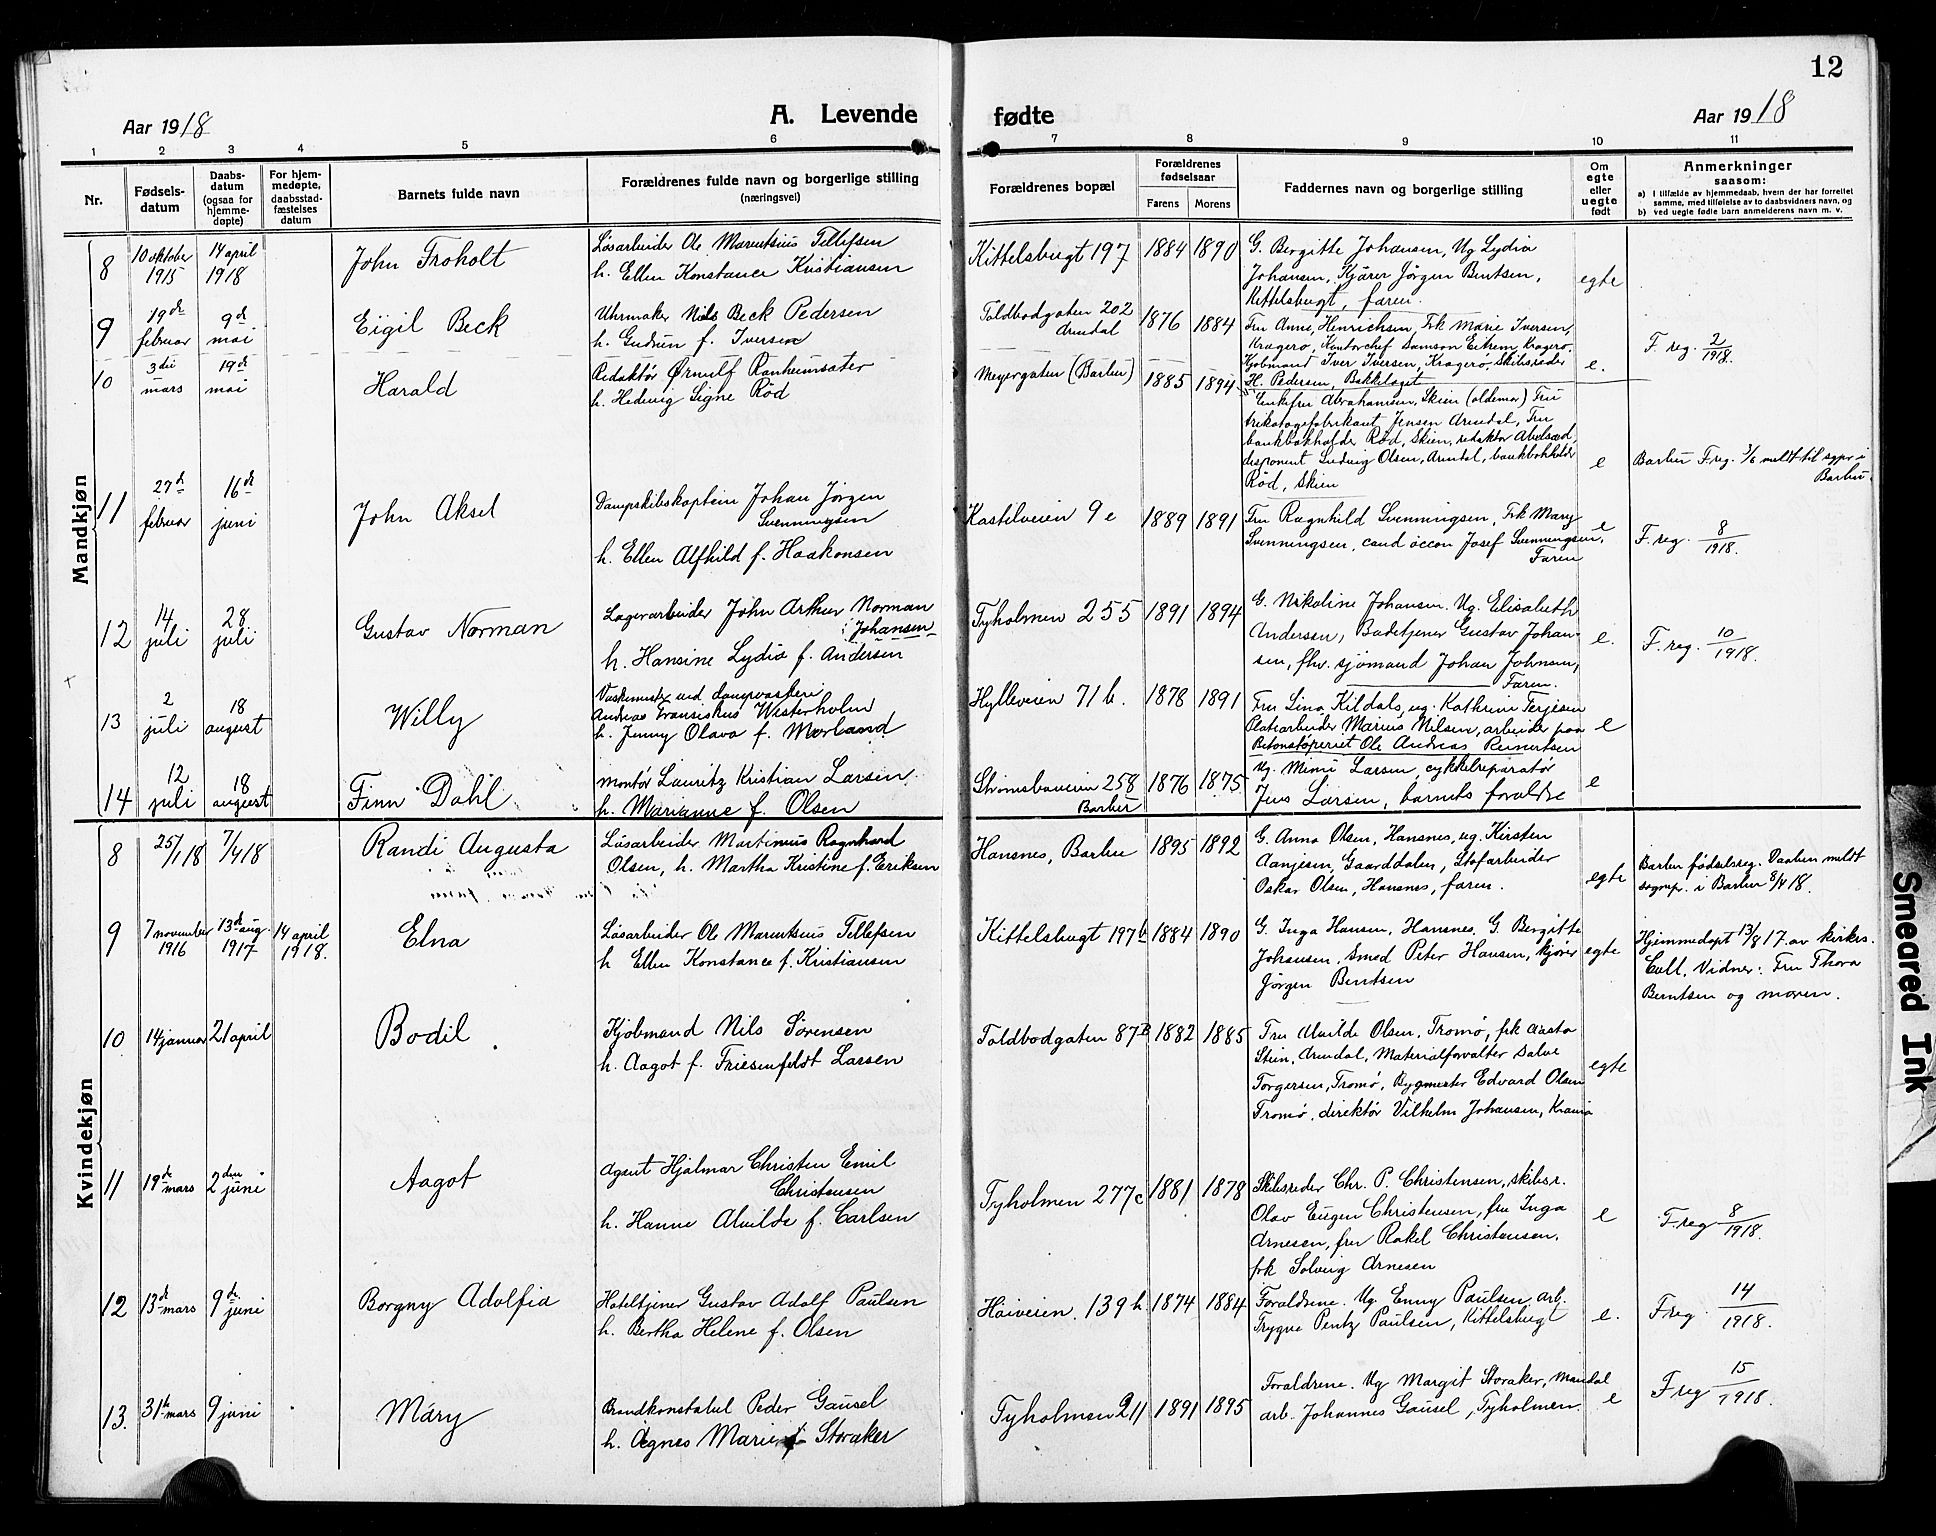 12
Aar 1918
A. Levende fødte
Aar 1918
1 2 3 4 5 6 7 8 9 10 11
Nr.
Fødsels-
datum
Daabs-
datum
(ogsaa for
hjemme-
døpte)
For hjem-
medøpte,
daabsstad-
fæstelses
datum
Barnets fulde navn
Forældrenes fulde navn og borgerlige stilling
(næringsvei)
Forældrenes bopæl
Forældrenes
fødselsaar
Farens Morens
Faddernes navn og borgerlige stilling
Om
egte
eller
uegte
født
Anmerkninger
saasom:
a) I tilfælde av hjemmedaab, hvem der har forrettet
samme, med tilføielse av to daabsvidners navn, og
b) ved uegte fødte barn anmelderens navn m. v.
Mandkjøn
8
10 oktober
1915
14 april
1918
John Froholt
Løsarbeider Ole Marentsius Tellefsen
h. Ellen Konstance Kristiansen
Kittelsbugt 197
1884 1890
G. Bergitte Johansen, Ug Lydia
Johansen, Kjører Jørgen Bentsen,
Kittelsbugt, faren.
egte
9
19de
februar
9de
mai
Eigil Beck
Uhrmaker Nils Beck Pedersen
h. Gudrun f. Iversen
Toldbodgaten 202
Arendal
1876 1884
Fru Anne Henrichsen, Frk Marie Iversen,
Kragerø, Kontorchef Samson Eitrem, Kragerø.
Kjøbmand Iver Iversen, Kragerø, Skibsreder
H. Pedersen, Bekkelaget
e.
F. reg. 2/1918.
10
3die
mars
19de
mai
Harald
Redaktør Ørnulf Ranheimsæter
h. Hedvig Signe Rød
Meyergaten (Barbu)
1885 1894
Enkefru Abrahamsen, Skien (oldemor) Fru
trikotagefabrikant Jensen Arendal, Fru
bankbokholder Rød, Skien, redaktør Abelsæd,
disponent Ludvig Olsen, Arendal, bankbokholder
Rød, Skien
e
Barbu F. reg. 7/6 meldt til sgpr i
Barbu.
11
27de
februar
16de
juni
John Aksel
Dampskibskaptein Johan Jørgen
Svenningsen
h. Ellen Alfhild f. Haakonsen
Kastelveien 9 e
1889 1891
Fru Ragnhild Svenningsen, Frk Mary
Svenningsen, cand occon Josef Svenningsen,
Faren
e
F. reg. 8/1918.
12
14
juli
28
juli
Gustav Norman
Lagerarbeider John Arthur Norman
Johansen
h. Hansine Lydia f. Andersen
Tyholmen 255
1891 1894
G. Nikoline Johansen. Ug. Elisabeth
Andersen, Badetjener Gustav Johan-
sen, fhv. sjømand Johan Johnsen,
Faren.
e.
F. reg. 10/1918.
13
2
juli
18
august
Willy
Vaskemester ved dampvaskeri
Andreas Fransiskus Westerholm
h. Jenny Olava f. Mørland
Hylleveien 71 b.
1878 1891
Fru Lina Kildals, ug. Kathrine Terjesen
Platearbeider Marius Nilsen, arbeider paa
Betonstøperiet Ole Andreas Reinertsen
e
14
12
juli
18
august
Finn Dahl
Montør Lauritz Kristian Larsen
h. Marianne f. Olsen
Strømsbuveien 258
Barbu
1876 1875
Ug. Mimi Larsen, cykkelreparatør
Jens Larsen, barnets foraldre
e
Kvindekjøn
8
25/1 18
7/4 18
Randi Augusta
Løsarbeider Martinius Ragnhard
Olsen, h. Martha Kristine f. Eriksen
Hansnes, Barbu
1895 1892
G. Anna Olsen, Hansnes, ug. Kirsten
Aanjesen, Gaarddalen, Stofarbeider
Oskar Olsen, Hansnes, faren.
egte
Barbu fødselsreg. Daaben meldt
sognepr. i Barbu 8/4 18.
9
7 november
1916
13de aug.
1917
14 april
1918.
Elna
Løsarbeider Ole Marentsius Tellefsen
h Ellen Konstance f. Kristiansen
Kittelsbugt 197b
1884 1890
G. Inga Hansen, Hansnes, G. Bergitte
Johansen, Smed Peter Hansen, kjører
Jørgen Bentsen
egte
Hjemmedøpt 13/8 17. av kirkes.
Call. Vidner: Fru Thora
Berntsen og moren.
10
14 januar
21 april
Bodil
Kjøbmand Nils Sørensen
h. Aagot f. Friesenfeldt Larsen
Toldbodgaten 87B
1882 1885
Fru Alvilde Olsen, Tromø, frk Aasta
Stein, Arendal, Materialforvalter Salve
Torgersen, Tromø, Bygmester Edvard Olsen
Tromø, direktør Vilhelm Johansen, Krania
egte
11
19de mars
2den juni
Aagot
Agent Hjalmar Christen Emil
Christensen
h. Hanne Alvilde f. Carlsen
Tyholmen 277c
1881 1878
Skibsreder Chr. P. Christensen, skibsr.
Olav Eugen Christensen, fru Inga
Arnesen, fru Rakel Christensen,
frk Solveig Arnesen
e
F. reg 8/1918.
12
13de mars
9de juni
Borgny Adolfia
Hoteltjener Gustav Adolf Paulsen
h. Bertha Helene f. Olsen
Høiveien. 139 h.
1874 1884
Foraldrene. Ug. Enny Paulsen, arb.
Trygve Pentz Paulsen, Kittelsbugt
e.
F reg 14/1918.
13.
31te mars
9 juni
Mary
Brandkonstabel Peder Gausel
h. Agnes Marie f. Storaker
Tyholmen 211
1891 1895
Foraldrene. Ug Margit Storaker, Mandal
arb. Johannes Gausel, Tyholmen.
e
F reg 15/1918.
Smeared Ink